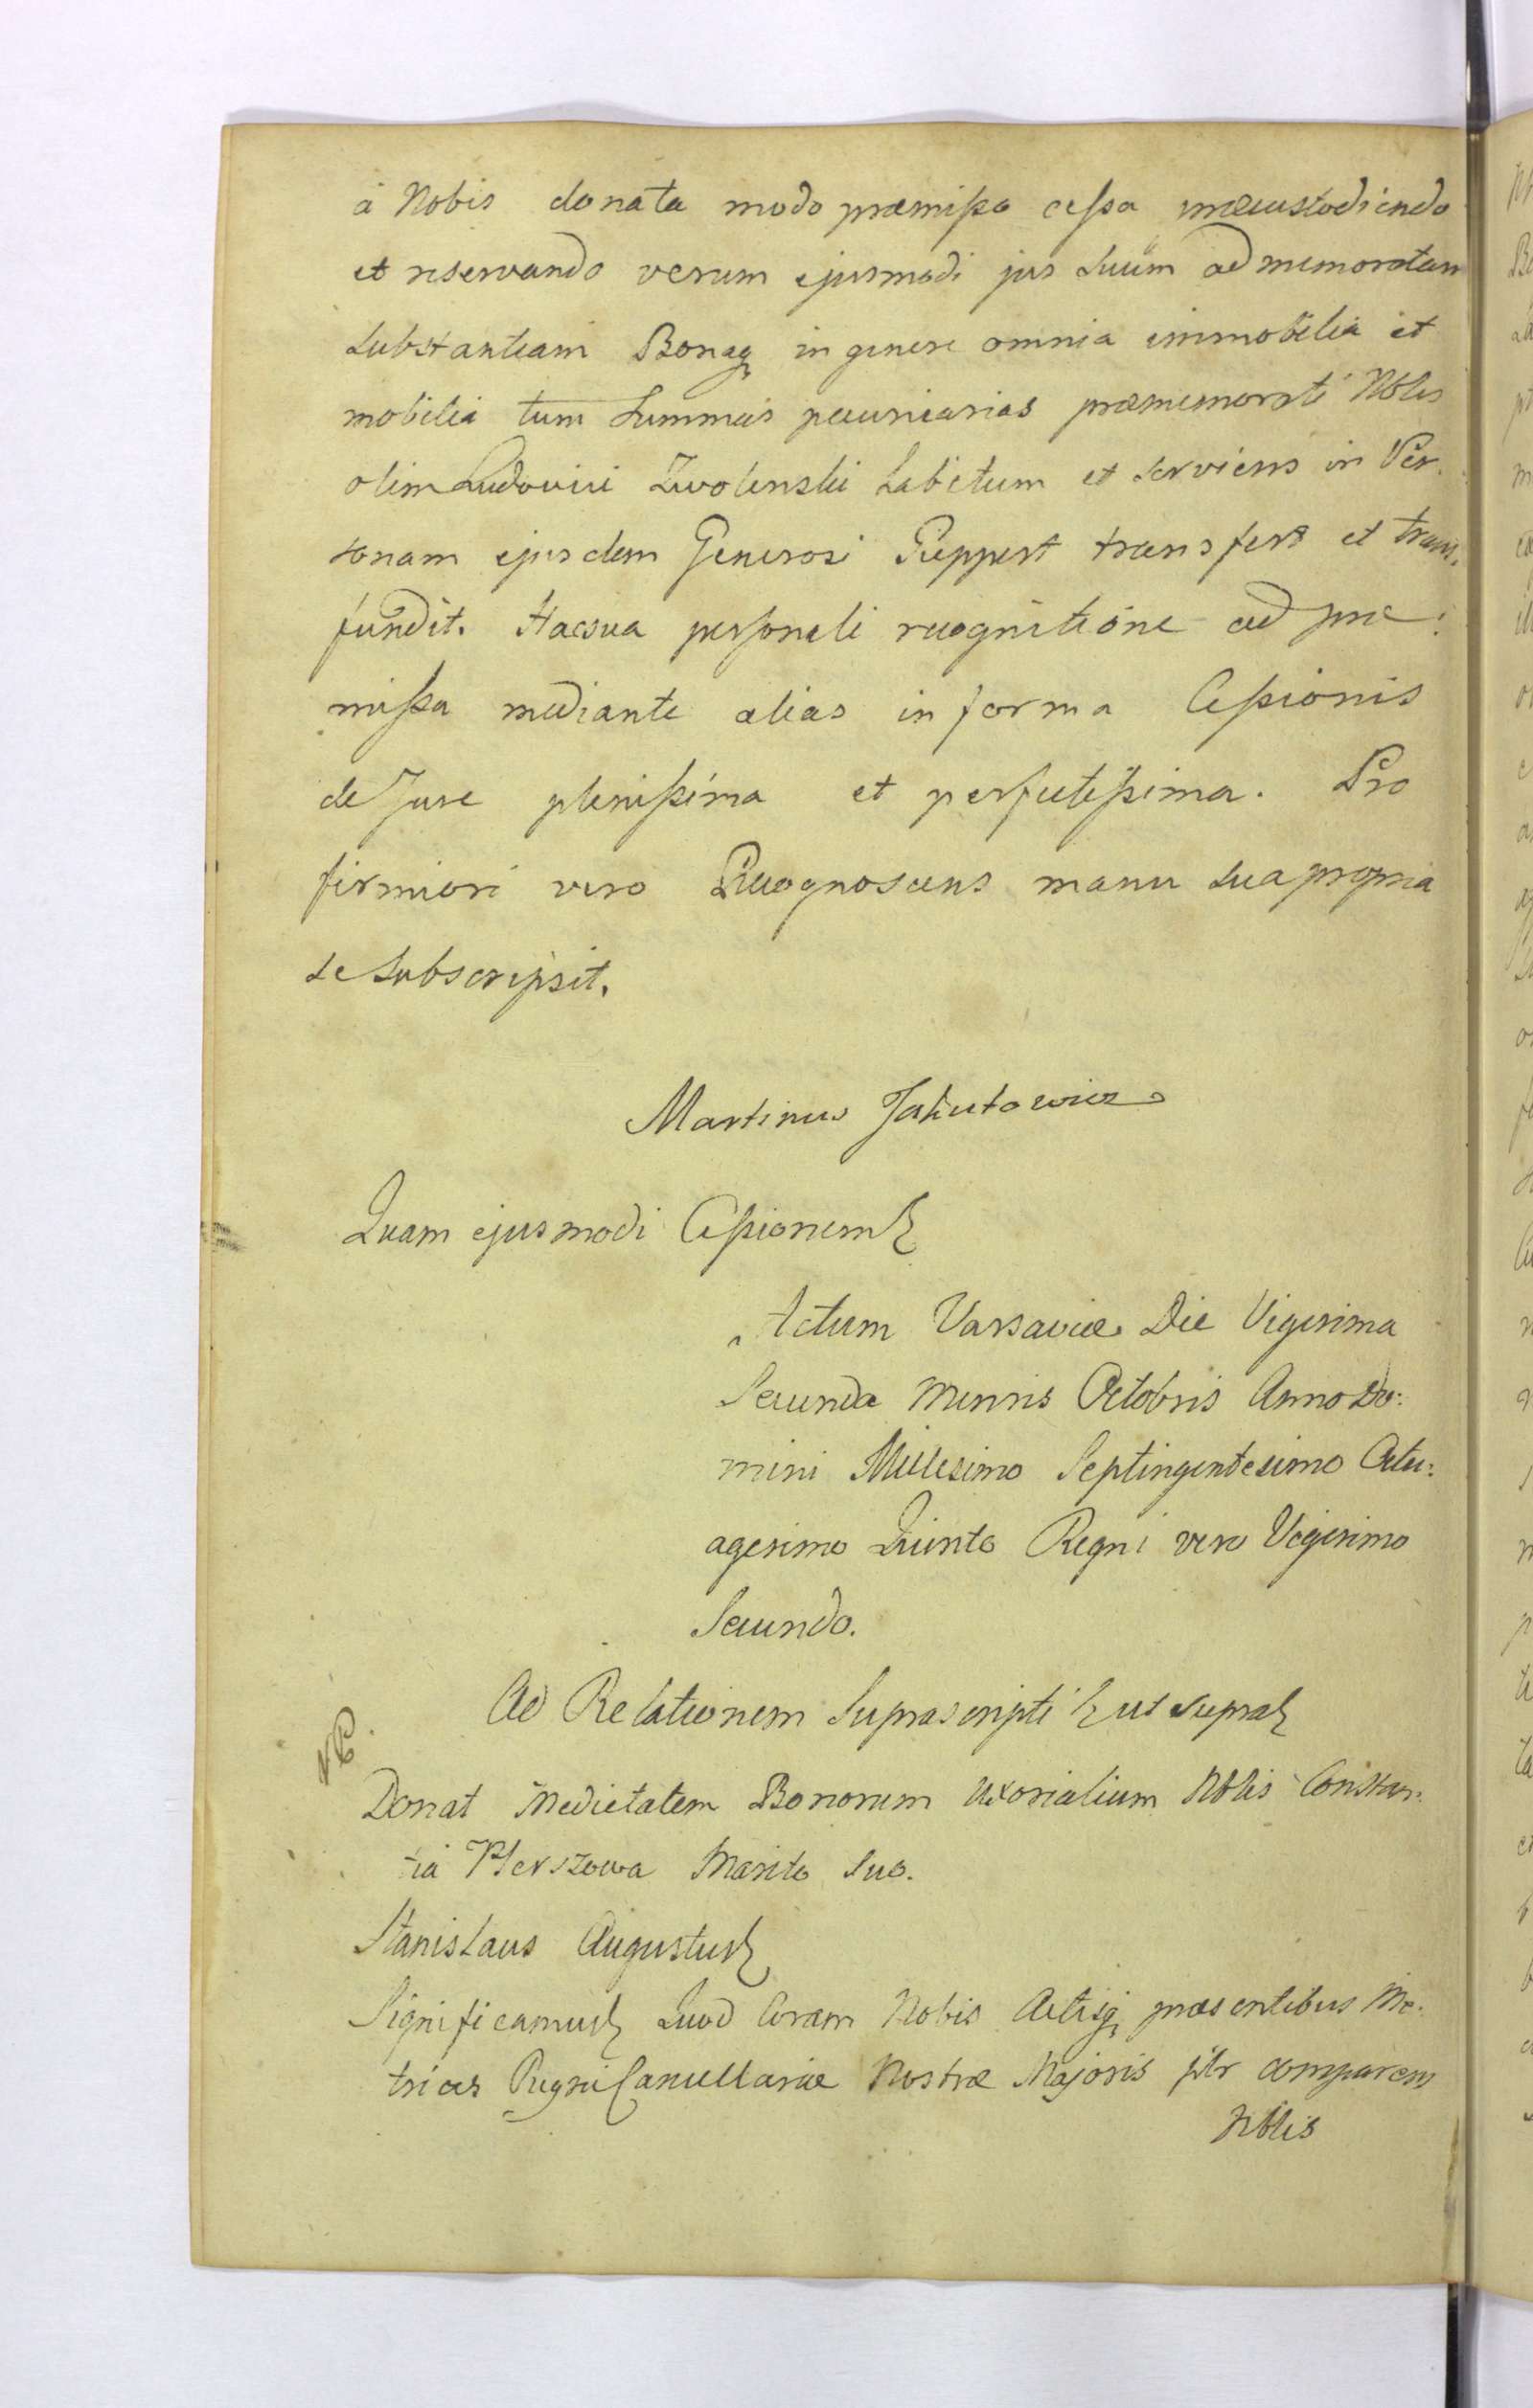 à Nobis donata modo præmissa cessa præcustodiendo
et reservando verum ejusmodi jus suum ad memoratam
substantiam Bonaq in genere omnia immobilia et
mobilia tum summas pecuniarias præmemorati Nblis
olim Ludovici Zwolenski habitum et serviens in Per-
sonam ejusdem Generosi Pieppert transfert et trans-
fundit. Hac sua personali recognitione ad præ:
missa mediante alias in forma Cessionis
de Jure plenissima et perfectissima. Pro
firmiori vero Recognoscens manu sua propria
se subscripsit.
Martinus Jakutowicz
Quam ejusmodi Cessionem
Actum Varsaviæ Die Vigesima
Secunda Mensis Octobris Anno Do:
mini Millesimo Septingentesimo Octu:
agesimo Quinto Regni vero Vigesimo
Secundo.
Ad Relationem Suprascripti ut supra
Donat Medietatem Bonorum Uxorialium Nblis Constan-
tia Herszowa Marito Suo.
Stanislaus Augustus
Significamus Quod Coram Nobis Actisq præsentibus Me-
trices Regni Cancellariæ Nostræ Majoris pltr comparens
Nblis